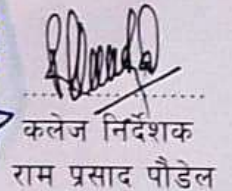 कलेज निर्देशक
राम प्रसाद पौडेल